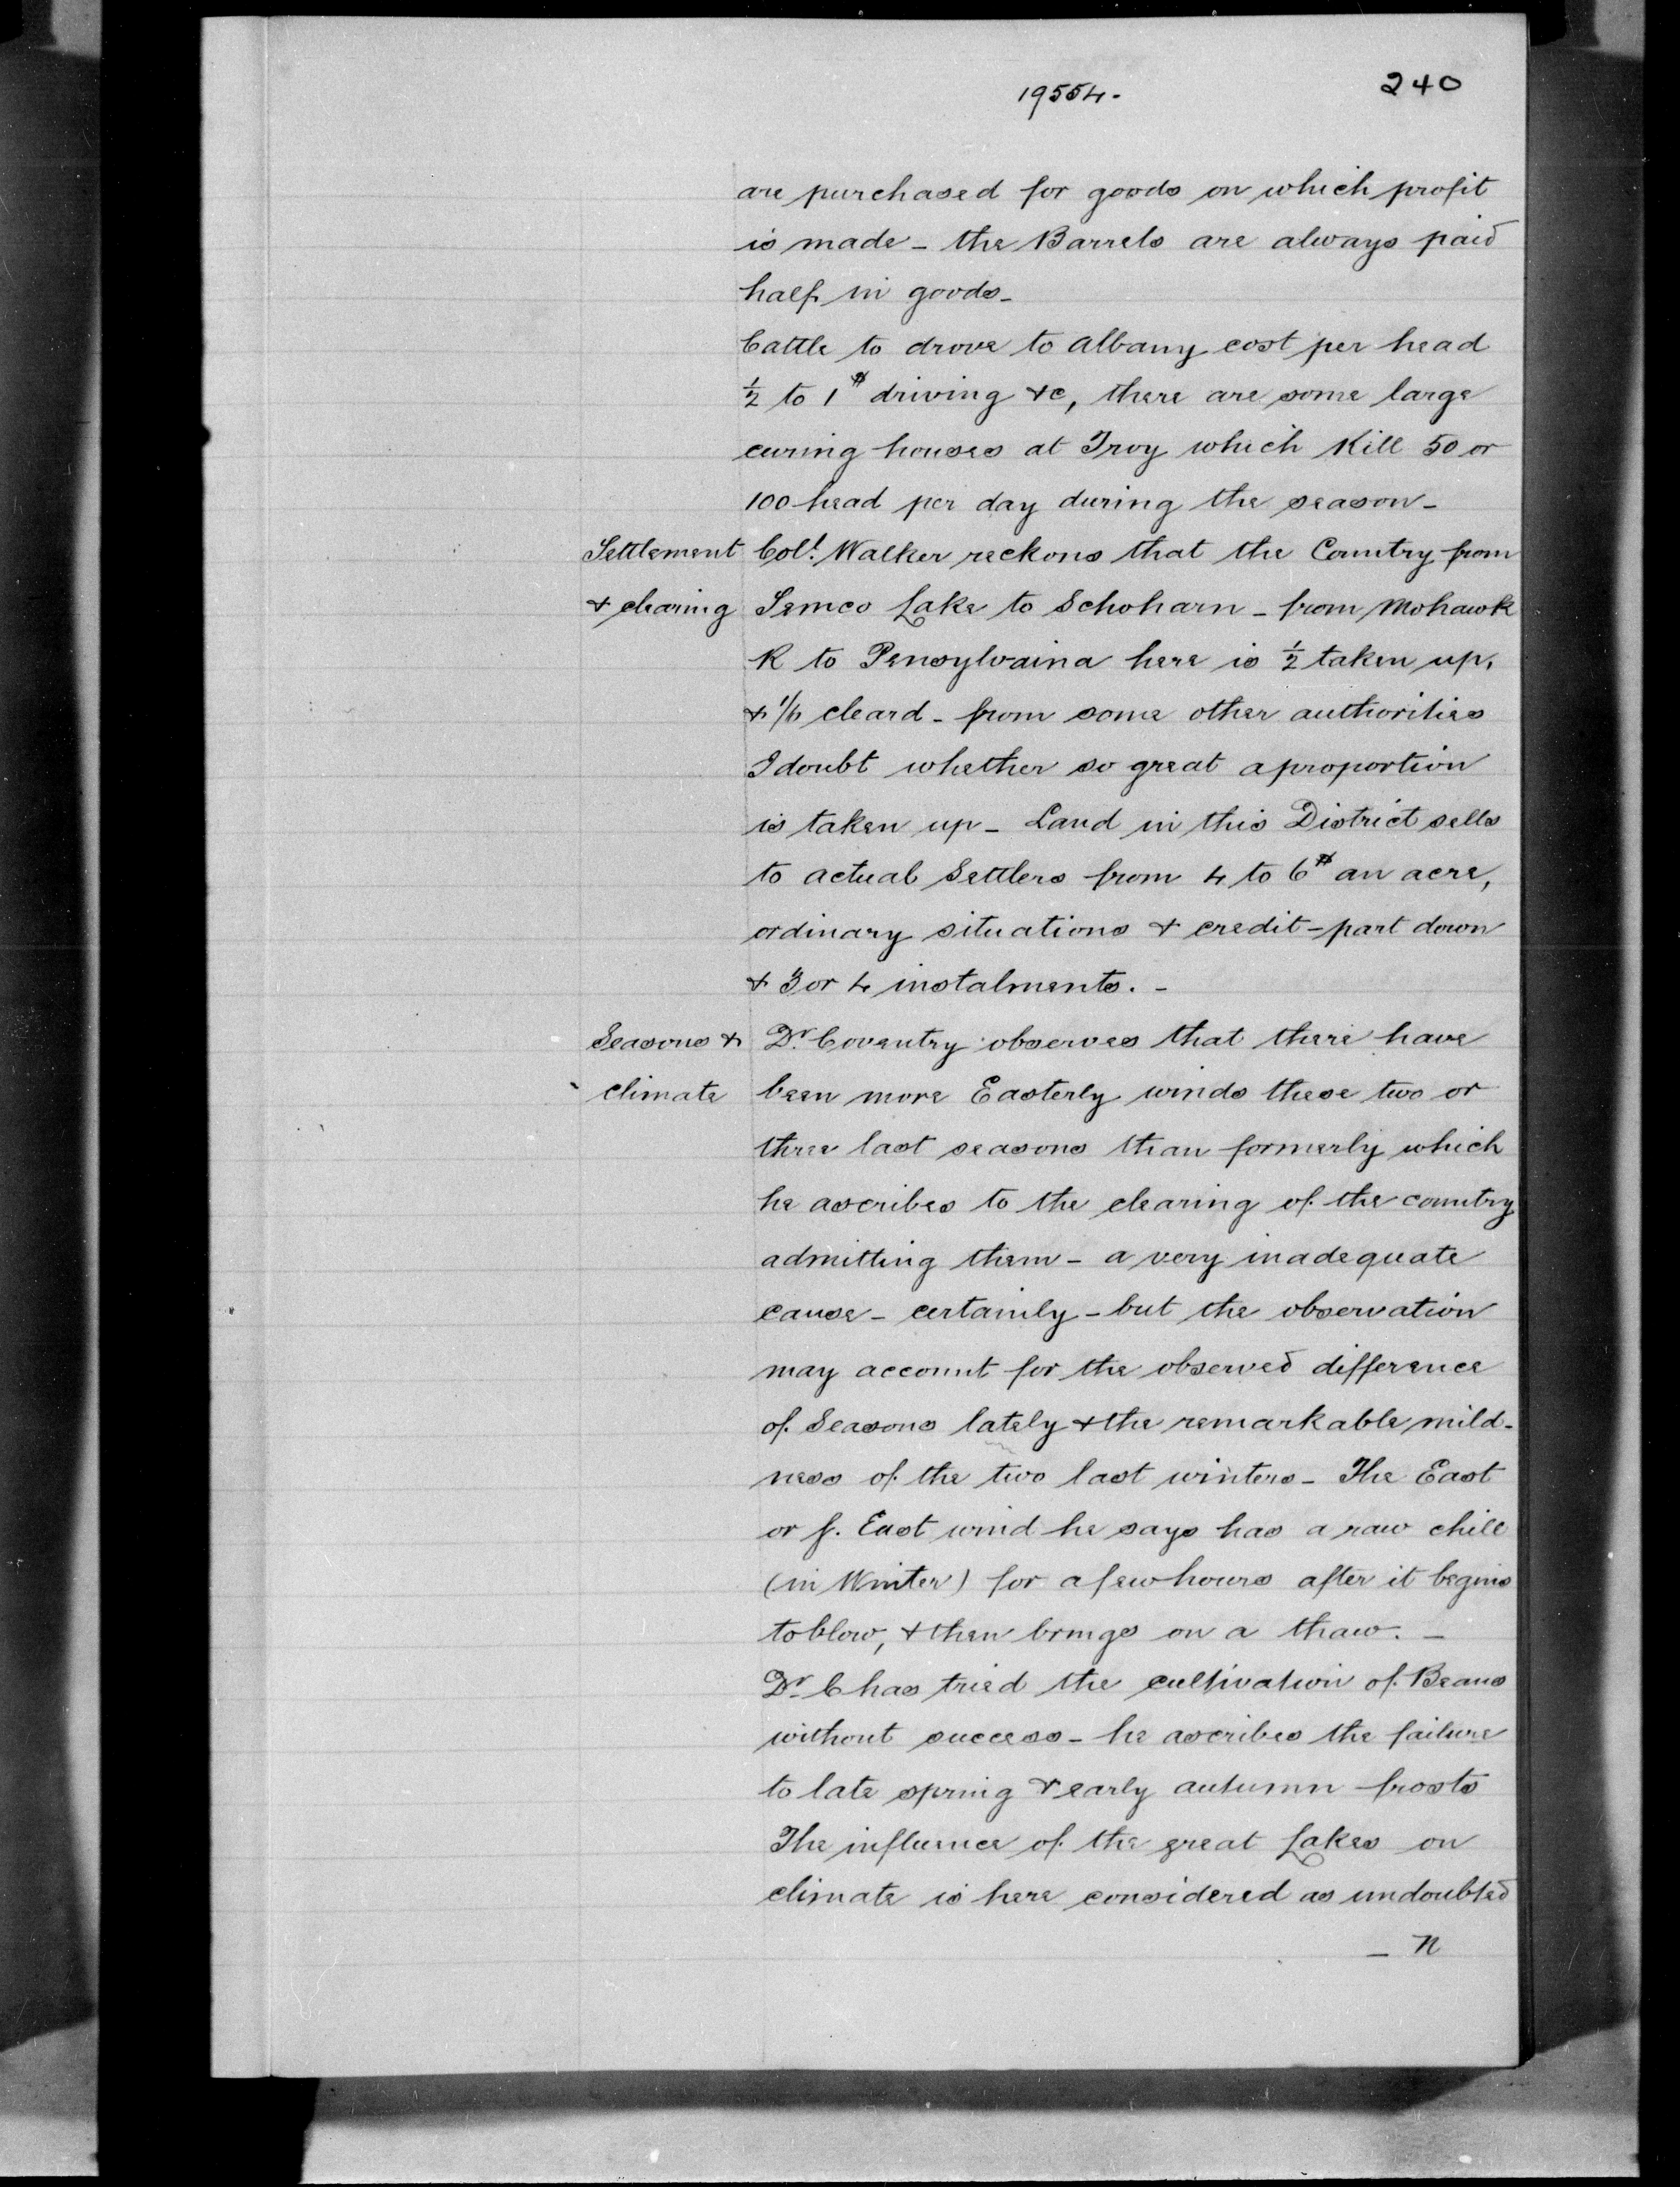 19554.
240
are purchased for goods on which profit
is made - the Barrels are always paid
half in goods -
Cattle to drove to Albany cost per head
½ to 1$ driving &c, there are some large
curing houses at Troy which Kill 50 or
100 head per day during the season -
Settlement Coll. Walker reckons that the Country from
& clearing Semco Lake to Schoharn - from Mohawk
R to Pensylvaina here is ½ taken up,
& cleard - from some other authorities
I doubt whether so great a proportion
is taken up - Land in this District sells
to actual Settlers from 4 to 6$ an acre,
ordinary situations & credit - part down
& 3 or 4 instalments. -
Seasons & Dr. Coventry observes that there have
climate been more Easterly winds these two or
three last seasons than formerly which
he ascribes to the clearing of the country
admitting them - a very inadequate
cause - certainly - but the observation
may account for the observed difference
of Seasons lately & the remarkable mild-
ness of the two last winters - The East
or S. East wind he says has a raw chill
(in Winter) for a few hours after it begins
to blow, & then brings on a thaw. -
Dr. C has tried the cultivation of Beans
without success - he ascribes the failure
to late spring & early autumn frosts
The influence of the great Lakes on
climate is here considered as undoubted
- N